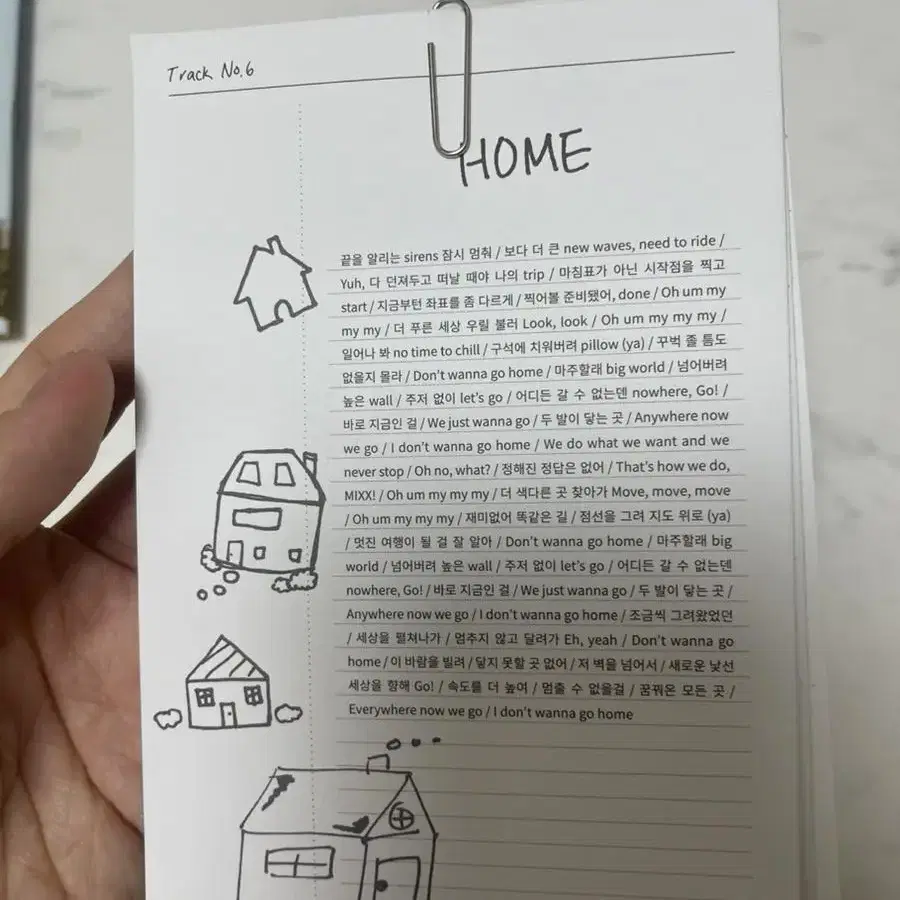 Track No.6
HOME
끝을 알리는 sirens 잠시 멈춰 / 보다 더 큰 new waves, need to ride /
Yuh, 다 던져두고 떠날 때야 나의 trip / 마침표가 아닌 시작점을 찍고
start / 지금부턴 좌표를 좀 다르게 / 찍어볼 준비됐어, done / Oh um my
my my / 더 푸른 세상 우릴 불러 Look, look / Oh um my my my /
일어나 봐 no time to chill / 구석에 치워버려 pillow (ya) / 꾸벅 졸 틈도
없을지 몰라 / Don't wanna go home / 마주할래 big world / 넘어버려
높은 wall / 주저 없이 let's go / 어디든 갈 수 없는덴 nowhere, Go! /
바로 지금인 걸 / We just wanna go / 두 발이 닿는 곳 / Anywhere now
we go / I don't wanna go home / We do what we want and we
never stop / Oh no, what? / 정해진 정답은 없어 / That's how we do,
MIXX! / Oh um my my my / 더 색다른 곳 찾아가 Move, move, move
/ Oh um my my my / 재미없어 똑같은 길 / 점선을 그려 지도 위로 (ya)
/ 멋진 여행이 될 걸 잘 알아 / Don't wanna go home / 마주할래 big
world / 넘어버려 높은 wall / 주저 없이 let's go / 어디든 갈 수 없는덴
nowhere, Go! / 바로 지금인 걸 / We just wanna go / 두 발이 닿는 곳 /
Anywhere now we go / I don't wanna go home / 조금씩 그려왔었던
/ 세상을 펼쳐나가 / 멈추지 않고 달려가 Eh, yeah / Don't wanna go
home / 이 바람을 빌려 / 닿지 못할 곳 없어 / 저 벽을 넘어서 / 새로운 낯선
세상을 향해 Go! / 속도를 더 높여 / 멈출 수 없을걸 / 꿈꿔온 모든 곳 /
Everywhere now we go / I don't wanna go home